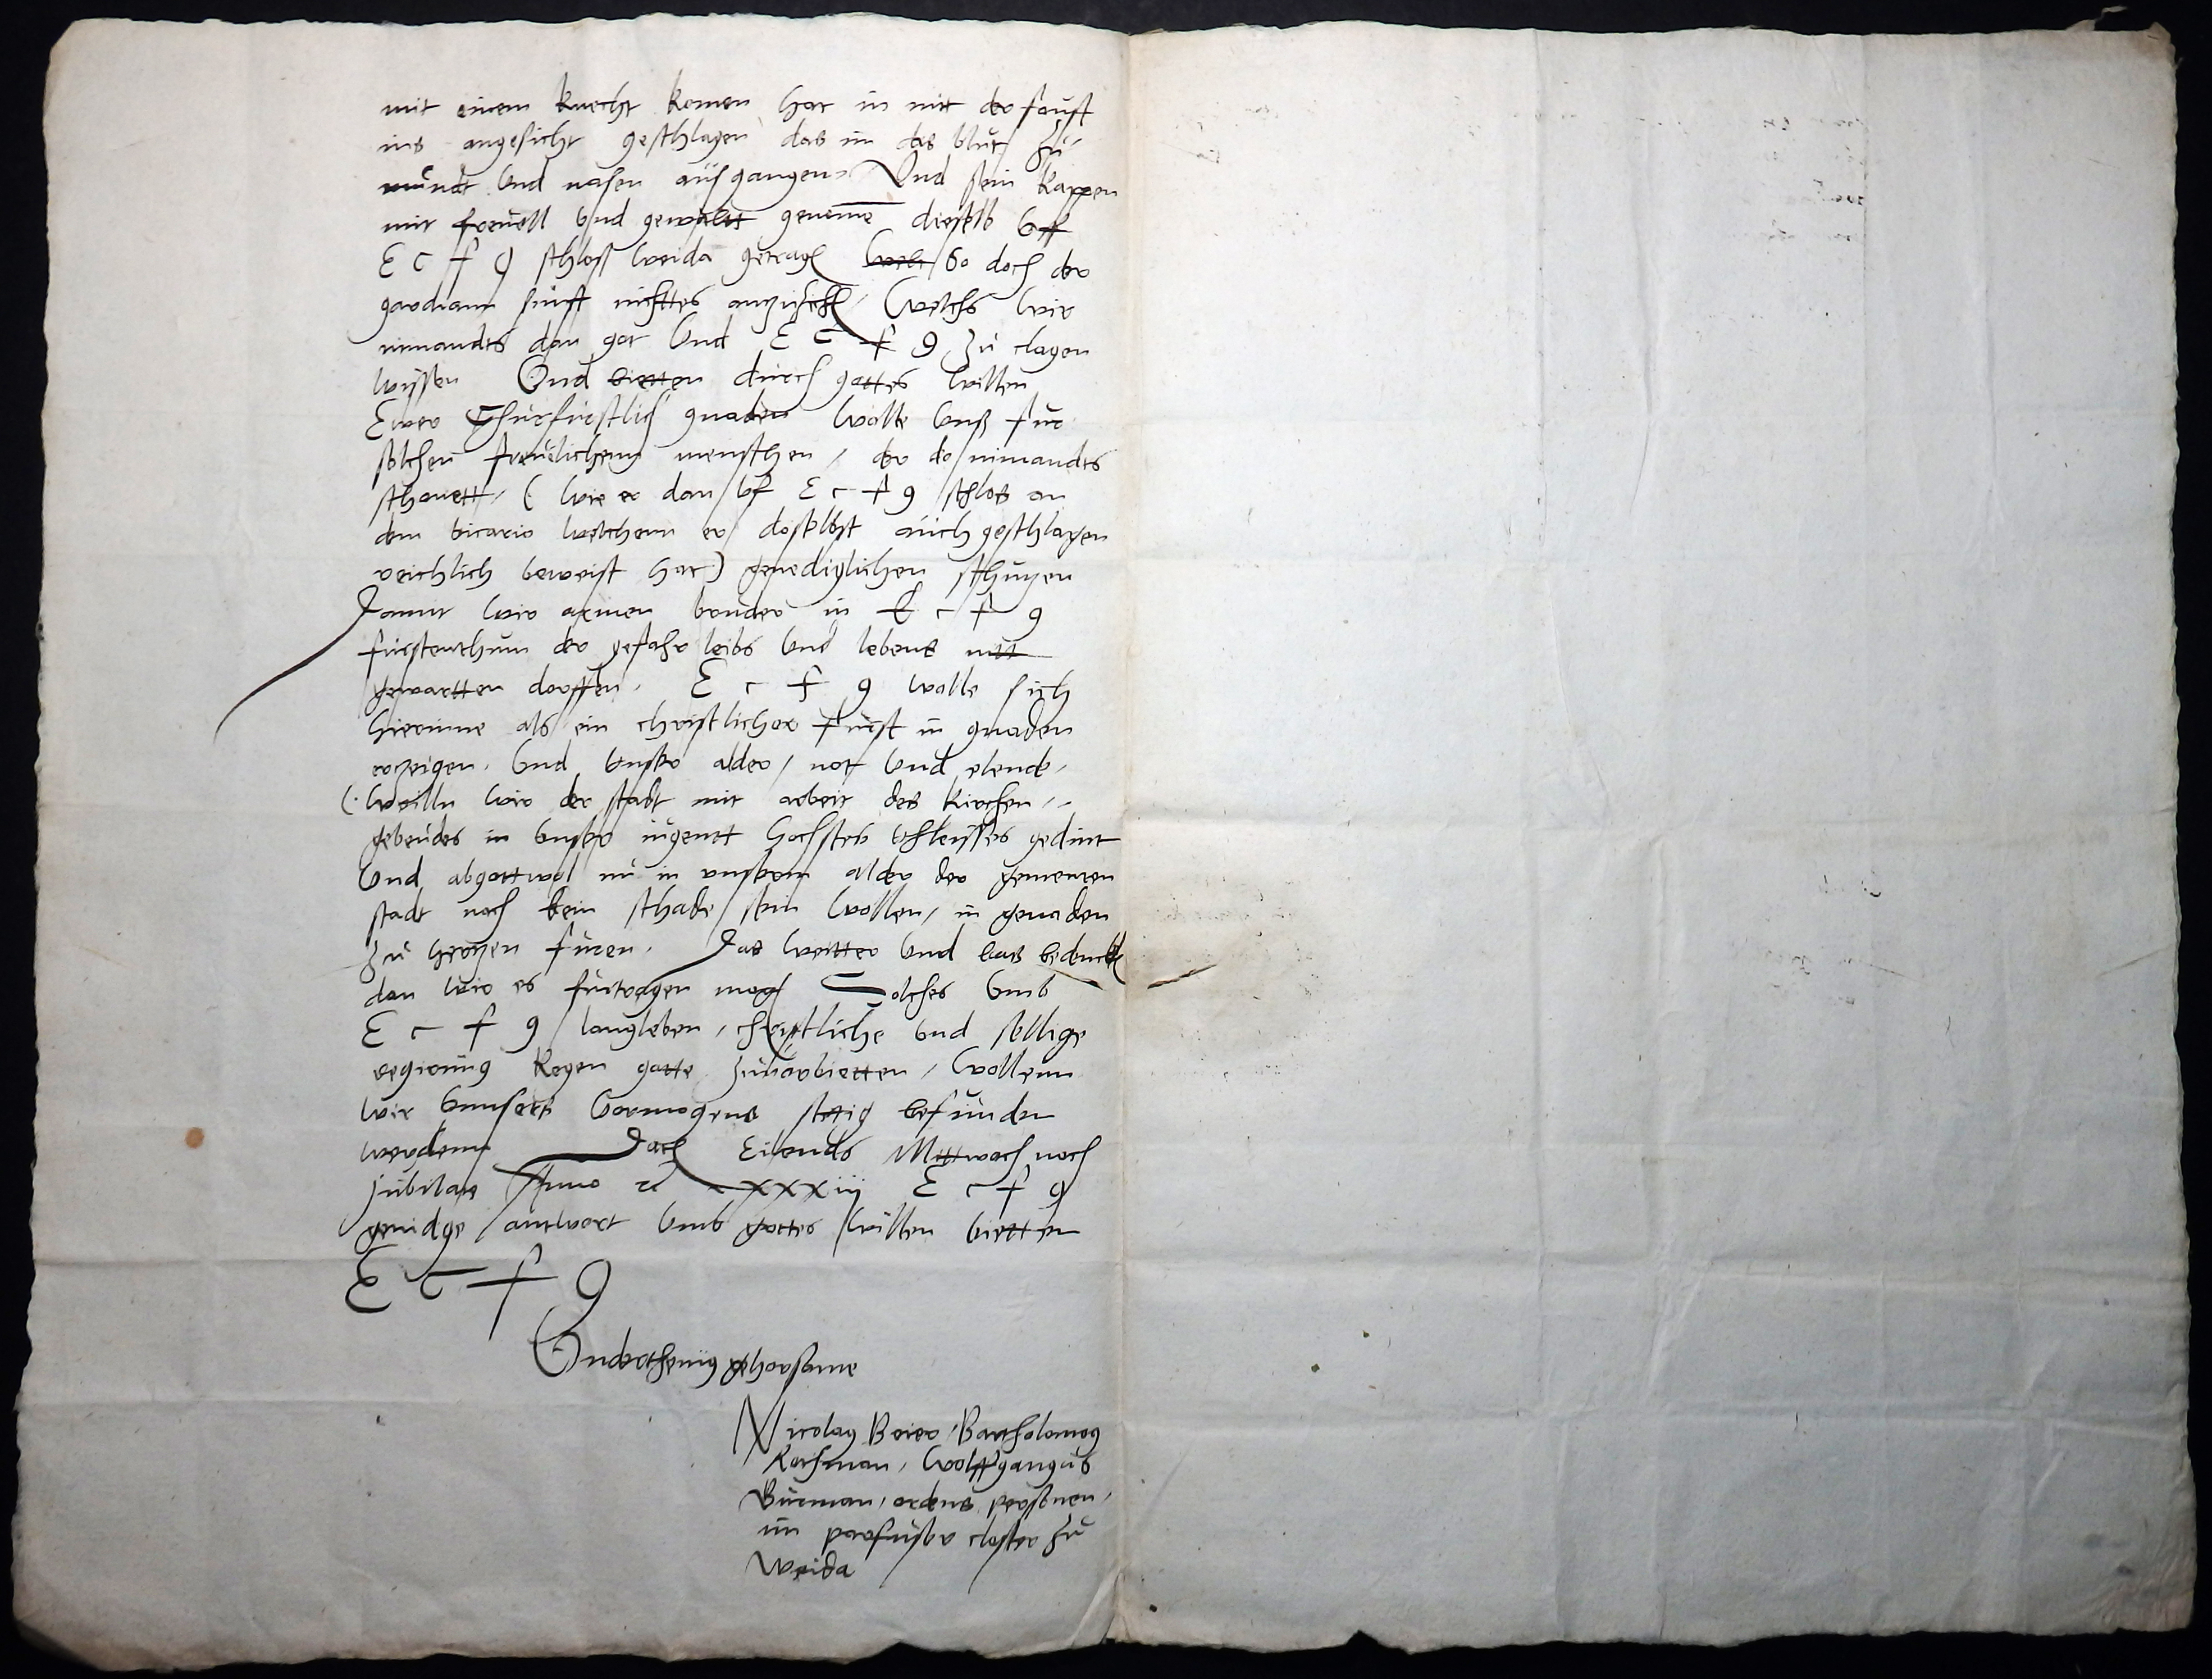 mit einem knecht komen hat in mit der faust
ins angesicht geschlagen das im das blut zu
mundt und nasen ausgangen Und sein kappen
mit freuell und gewaltt genome dieselb vff
E c f g schloss weida getragen So doch der
gardian sunst nichttes anzuzich welchs wir
nimandes dan got Und E c f g zu clagen
wissen Und bietten durch gottes willen
Ewer Churfurstlich gnaden wolle vnß fur
solchen freuelichenn menschen / der do nimandes
schonett / ( wie er dan vf E c f g schlos an
dem vicario welchenn er doselbst auch geschlagen
reichlich beweist hat ) genediglichen schutzen
Damit wir armen bruder in E c f g
furstenthum der gefahr leibs vnd lebens nitt
gewartten dorffen. E c f g wolle sich
hierinne als ein christlicher furst in gnaden
erzeigen. Vnd vnßer alder / not vnd elende /
( Weilln wir der stadt mit arbeit des kirchen
gebeudes in vnßer iugent hochstes vhleisses gedint
Vnd abgottwol nu in vnßerm alder der gemeinen
stadt noch kein schade sein wollen / in genaden
zu hertzen furen. Das weitter vnd bas bedenck
dan wir es furtragen mog Solches vmb
E c f g langleben / christliche vnd sellige
regirung kegen gotte zuuorbietten / wollenn
wir vnnsers vormogens stetig befunden
werdenn Dat Eilends Mittwoch noch
Jubilate Anno zc xxxiii E c f g
genidge antwort vmb gottes willen bietten
E c f g
Vnderthenig gehorsame
Nicolaus Beier / Bartholomeus
Kochman / Wolffgangus
Burman / ordens personen /
im parfusser closter zu
Weida